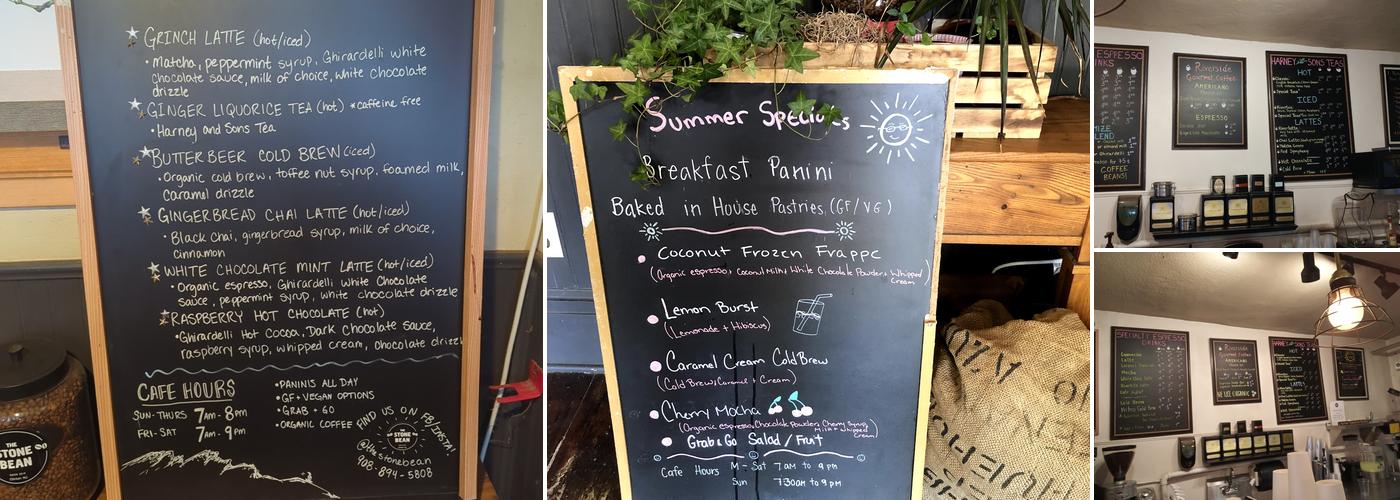 GRINCH LATTE (hot/iced)
• Matcha, peppermint syrup, Ghirardelli white
chocolate sauce, milk of choice, white chocolate
drizzle
GINGER LIQUORICE TEA (hot) *caffeine free
• Harney and Sons Tea
BUTTERBEER COLD BREW (iced)
• Organic cold brew, toffee nut syrup, foamed milk,
Caramel drizzle
GINGERBREAD CHAI LATTE (hot/iced)
• Black chai, gingerbread syrup, milk of choice,
cinnamon
WHITE CHOCOLATE MINT LATTE (hot/iced)
• Organic espresso, Ghirardelli white Chocolate
sauce, peppermint syrup, white chocolate drizzle
RASPBERRY HOT CHOCOLATE (hot)
• Ghirardelli Hot Cocoa, Dark Chocolate sauce,
raspberry syrup, whipped cream, chocolate drizzle
CAFE HOURS
SUN-THURS 7AM-8PM
FRI-SAT 7AM-9PM
• PANINIS ALL DAY
• GF + VEGAN OPTIONS
• GRAB + GO
• ORGANIC COFFEE
FIND US ON FB/INSTA!
THE STONE BEAN
@thestonebean
908-894-5808
THE
STONE
BEAN
Summer Specials
Breakfast Panini
Baked in House Pastries (GF/VG)
• Coconut Frozen Frappe
(Organic espresso, Coconut Milk, White Chocolate Powder, Whipped
Cream)
• Lemon Burst
(Lemonade + Hibiscus)
• Caramel Cream Cold Brew
(Cold Brew, Caramel + Cream)
• Cherry Mocha
(Organic espresso, Chocolate Powder, Cherry Syrup,
Milk + Whipped
Cream)
• Grab & Go Salad / Fruit
Cafe Hours M-Sat 7am to 9pm
Sun 7:30am to 9pm
ESPRESSO
Riverside
Gourmet Coffee
AMERICANO
ESPRESSO
HARNEY and SONS TEAS
HOT
ICED
LATTES
Hot Chocolate
Cold Brew
COFFEE
BEANS!
SPECIALTY ESPRESSO
DRINKS
Cappuccino
Latte
Mocha
Riverside
Gourmet Coffee
AMERICANO
ESPRESSO
WE USE ORGANIC
HARNEY and SONS TEAS
HOT
ICED
LATTES